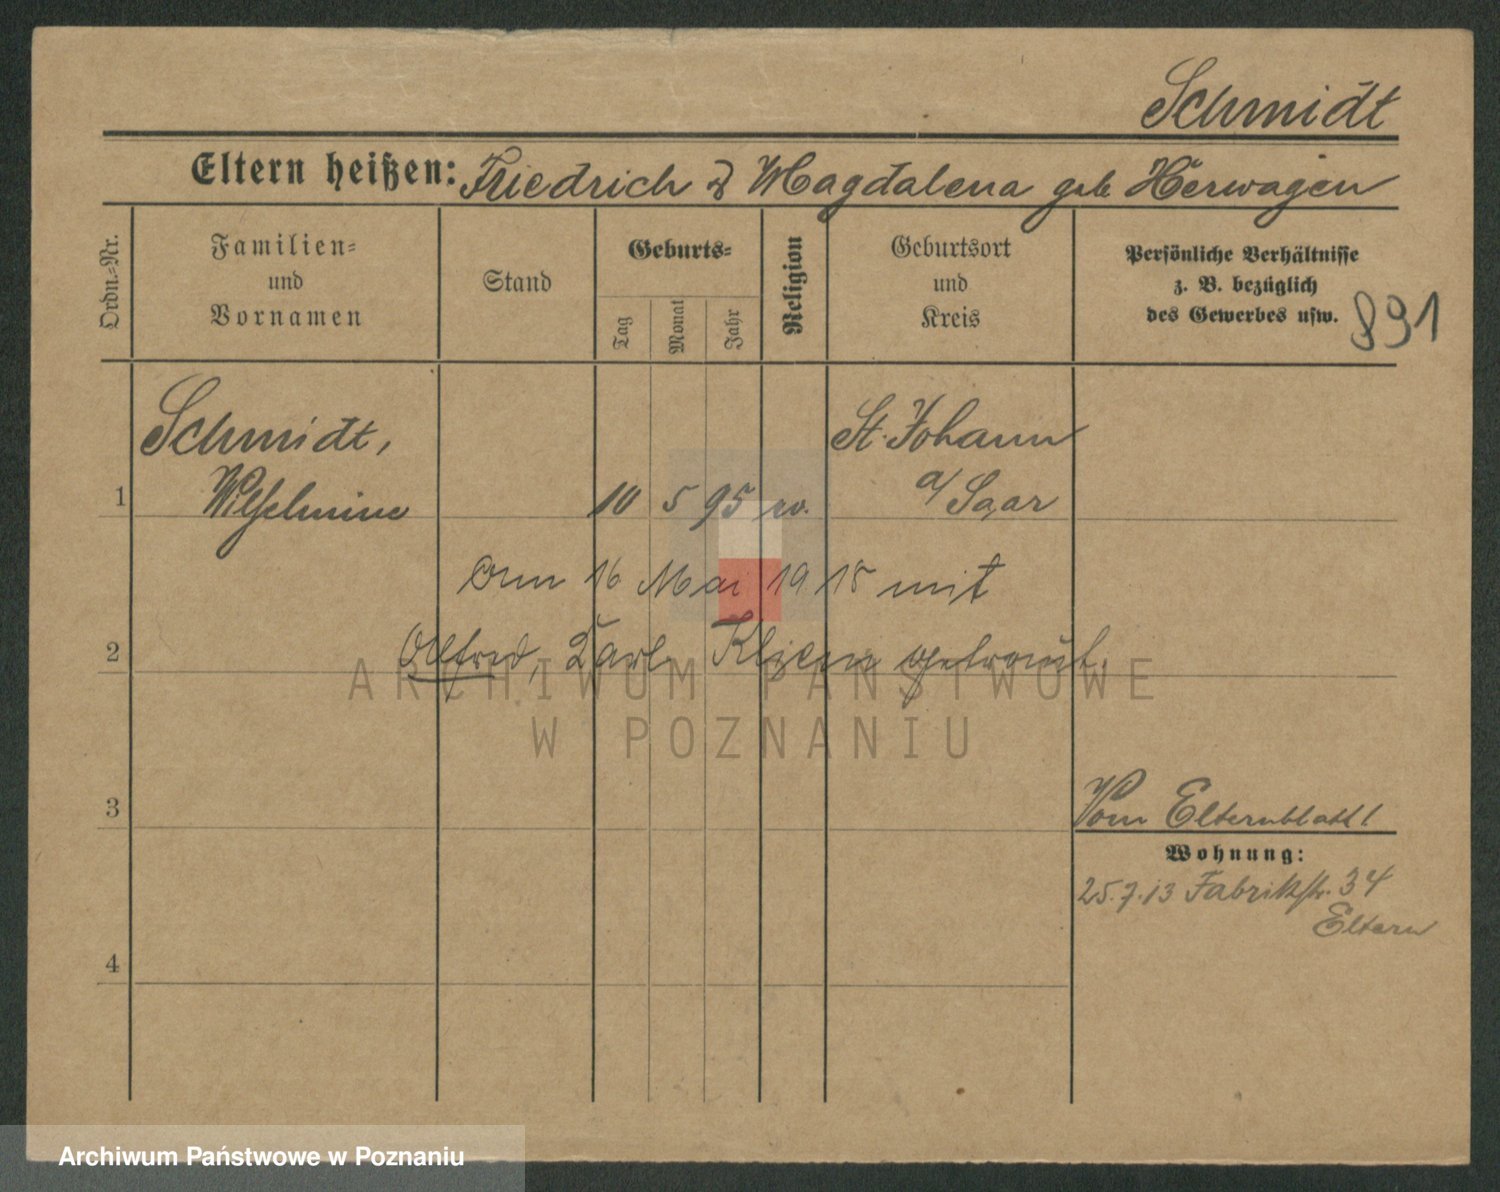 Schmidt
Eltern heißen: Friedrich & Magdalena geb Herwagen
Ordn.=Nr.
Familien=
und
Vornamen
Stand
Geburts=
Tag
Monat
Jahr
Religion
Geburtsort
und
Kreis
Persönliche Verhältnisse
z. B. bezüglich
des Gewerbes usw.
891
Schmidt,
St. Johann
1 Wilhelmine 10 5 95 ev. a/Saar
Am 16 Mai 1918 mit
2 Alfred, Karl getraut.
ARCHIWUM PAŃSTWOWE
W POZNANIU
3
Vom Elternblatt!
Wohnung:
25.7.13 Fabrikstr. 34
Eltern
4
Archiwum Państwowe w Poznaniu